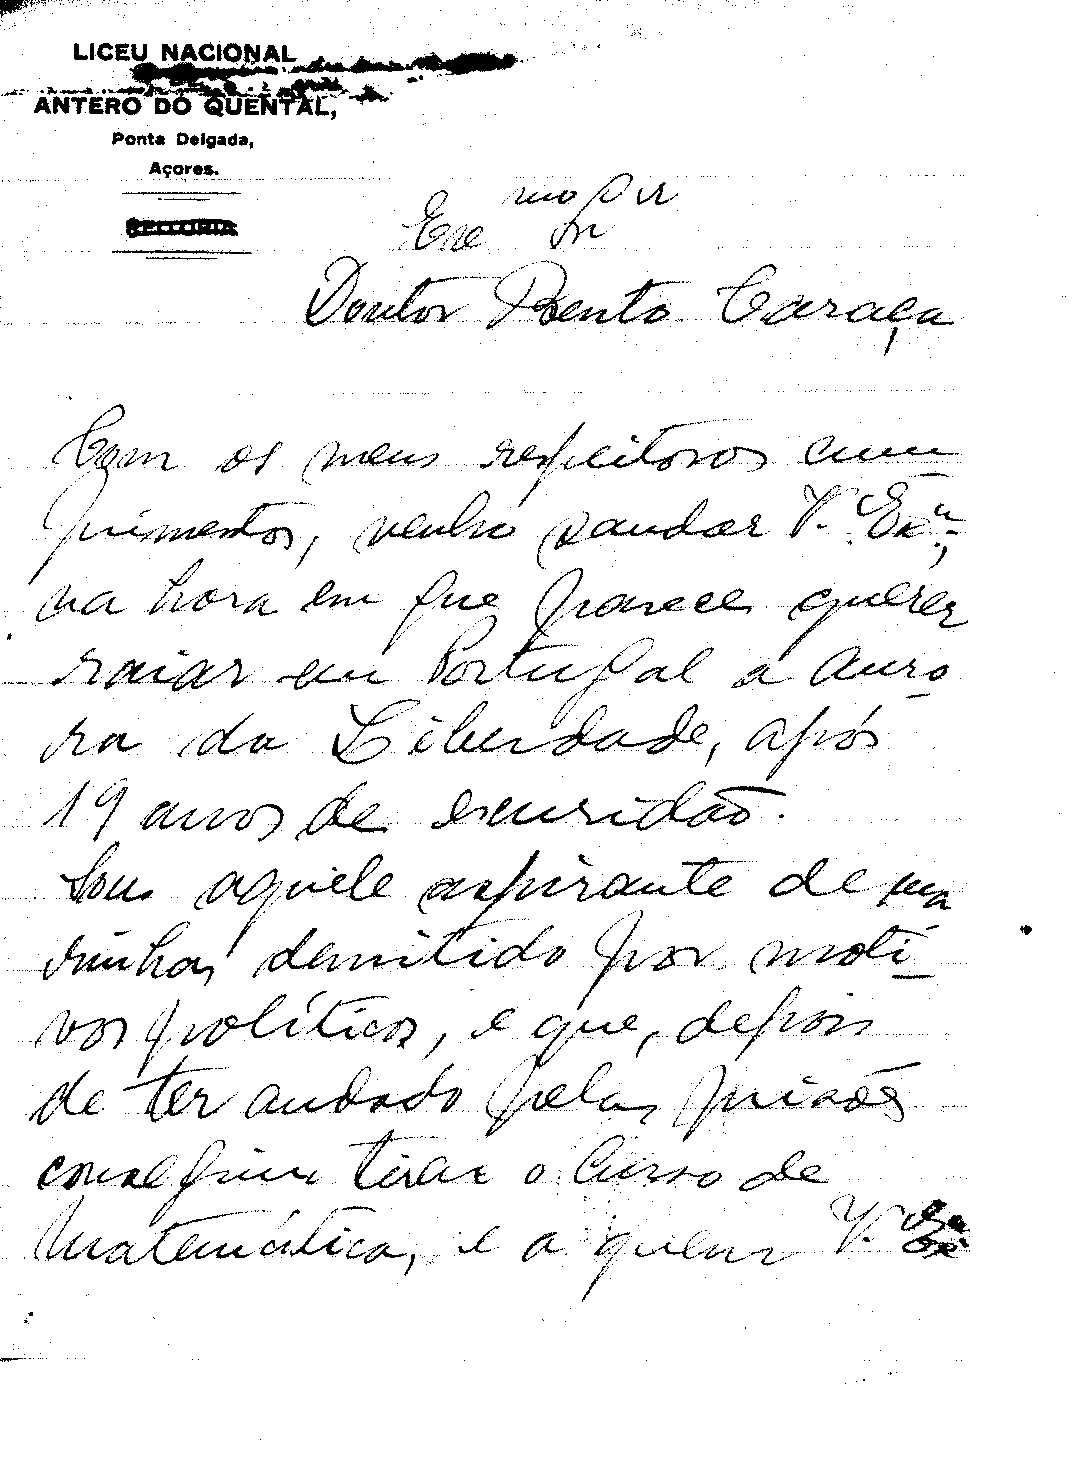 LICEU NACIONAL
ANTERO DO QUENTAL,
Ponta Delgada,
Açores.
Exmo Sr
Doutor Bento Caraça
Com os meus respeitosos cum-
primentos, venho saudar V. Exª,
na hora em que parece querer
raiar em Portugal a auro-
ra da Liberdade, após
19 anos de escuridão.
Sou aquele aspirante de ma
rinha, demitido por moti-
vos políticos, e que, depois
de ter andado pelas prisões
consegui tirar o Curso de
Matemática, e a quem V. Exª